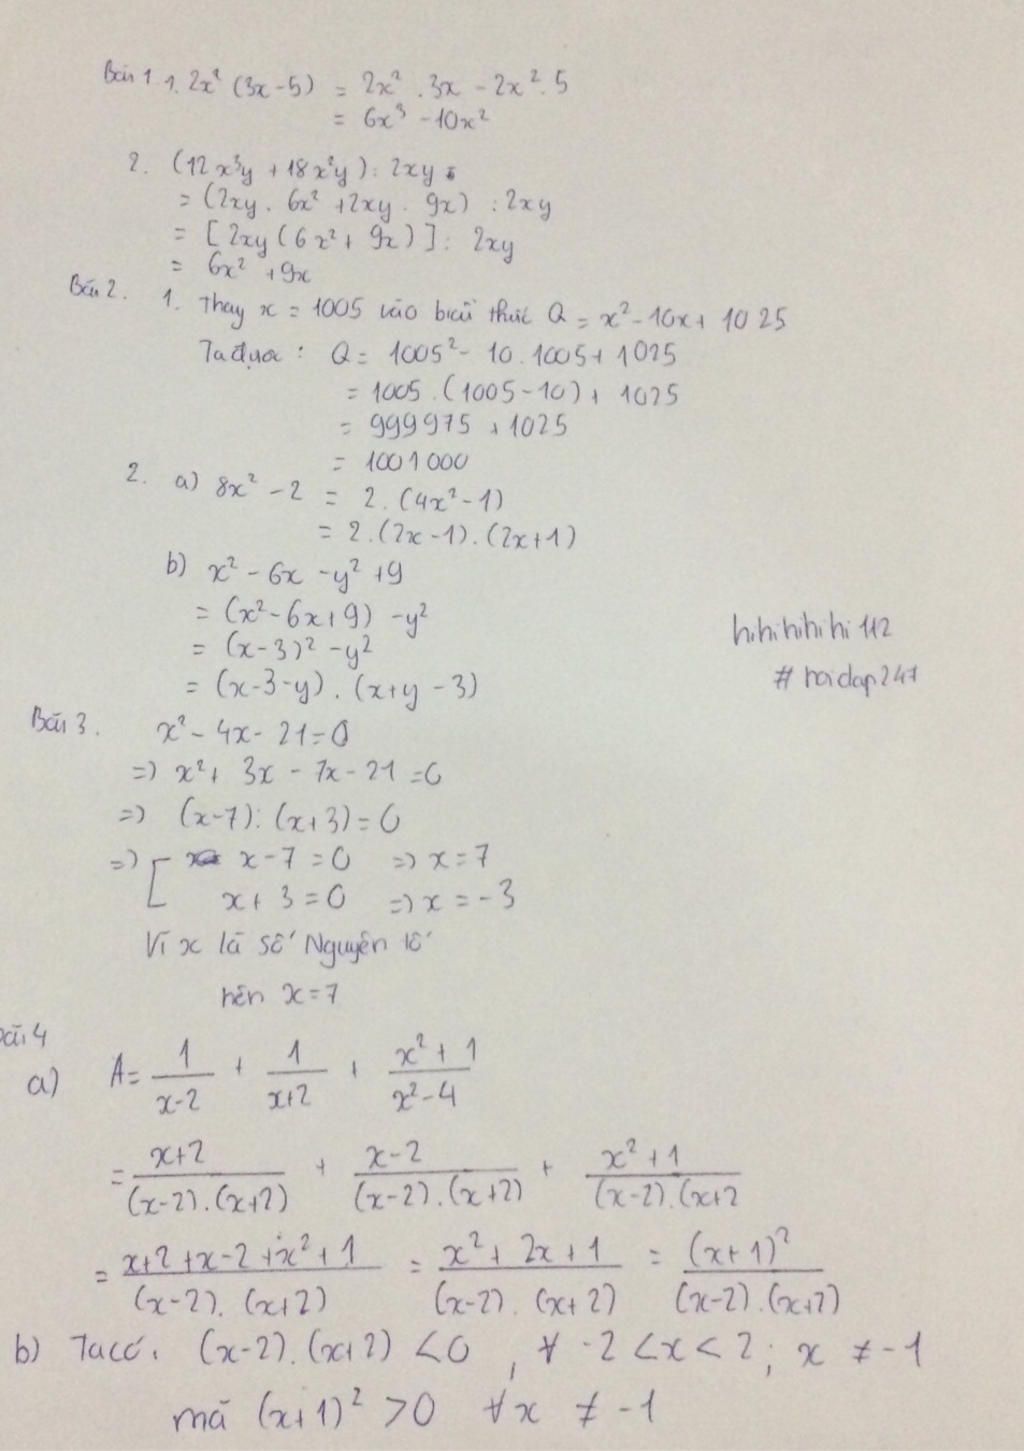 Bài 1. 1. 2x² (3x-5) = 2x² . 3x - 2x² . 5
= 6x³ - 10x²
2. (12x³y + 18x²y) : 2xy
= (2xy . 6x² + 2xy . 9x) : 2xy
= [2xy (6x² + 9x)] : 2xy
= 6x² + 9x
Bài 2. 1. Thay x = 1005 vào biểu thức Q = x² - 10x + 1025
Ta được : Q = 1005² - 10 . 1005 + 1025
= 1005 . (1005 - 10) + 1025
= 999975 + 1025
= 1001000
2. a) 8x² - 2 = 2 . (4x² - 1)
= 2 . (2x - 1) . (2x + 1)
b) x² - 6x - y² + 9
= (x² - 6x + 9) - y²
= (x - 3)² - y²
= (x - 3 - y) . (x + y - 3)
hihihihihi112
#hoidap247
Bài 3. x² - 4x - 21 = 0
=> x² + 3x - 7x - 21 = 0
=> (x - 7) : (x + 3) = 0
=> [ x - 7 = 0 => x = 7
x + 3 = 0 => x = -3
Vì x là số Nguyên tố
nên x = 7
bài 4
a) A = 1/(x-2) + 1/(x+2) + (x² + 1)/(x² - 4)
= (x+2)/((x-2).(x+2)) + (x-2)/((x-2).(x+2)) + (x² + 1)/((x-2).(x+2
= (x+2+x-2+x²+1)/((x-2).(x+2)) = (x² + 2x + 1)/((x-2).(x+2)) = (x+1)²/((x-2).(x+2))
b) Ta có. (x-2).(x+2) < 0 , ∀ -2 < x < 2 ; x ≠ -1
mà (x+1)² > 0 ∀x ≠ -1